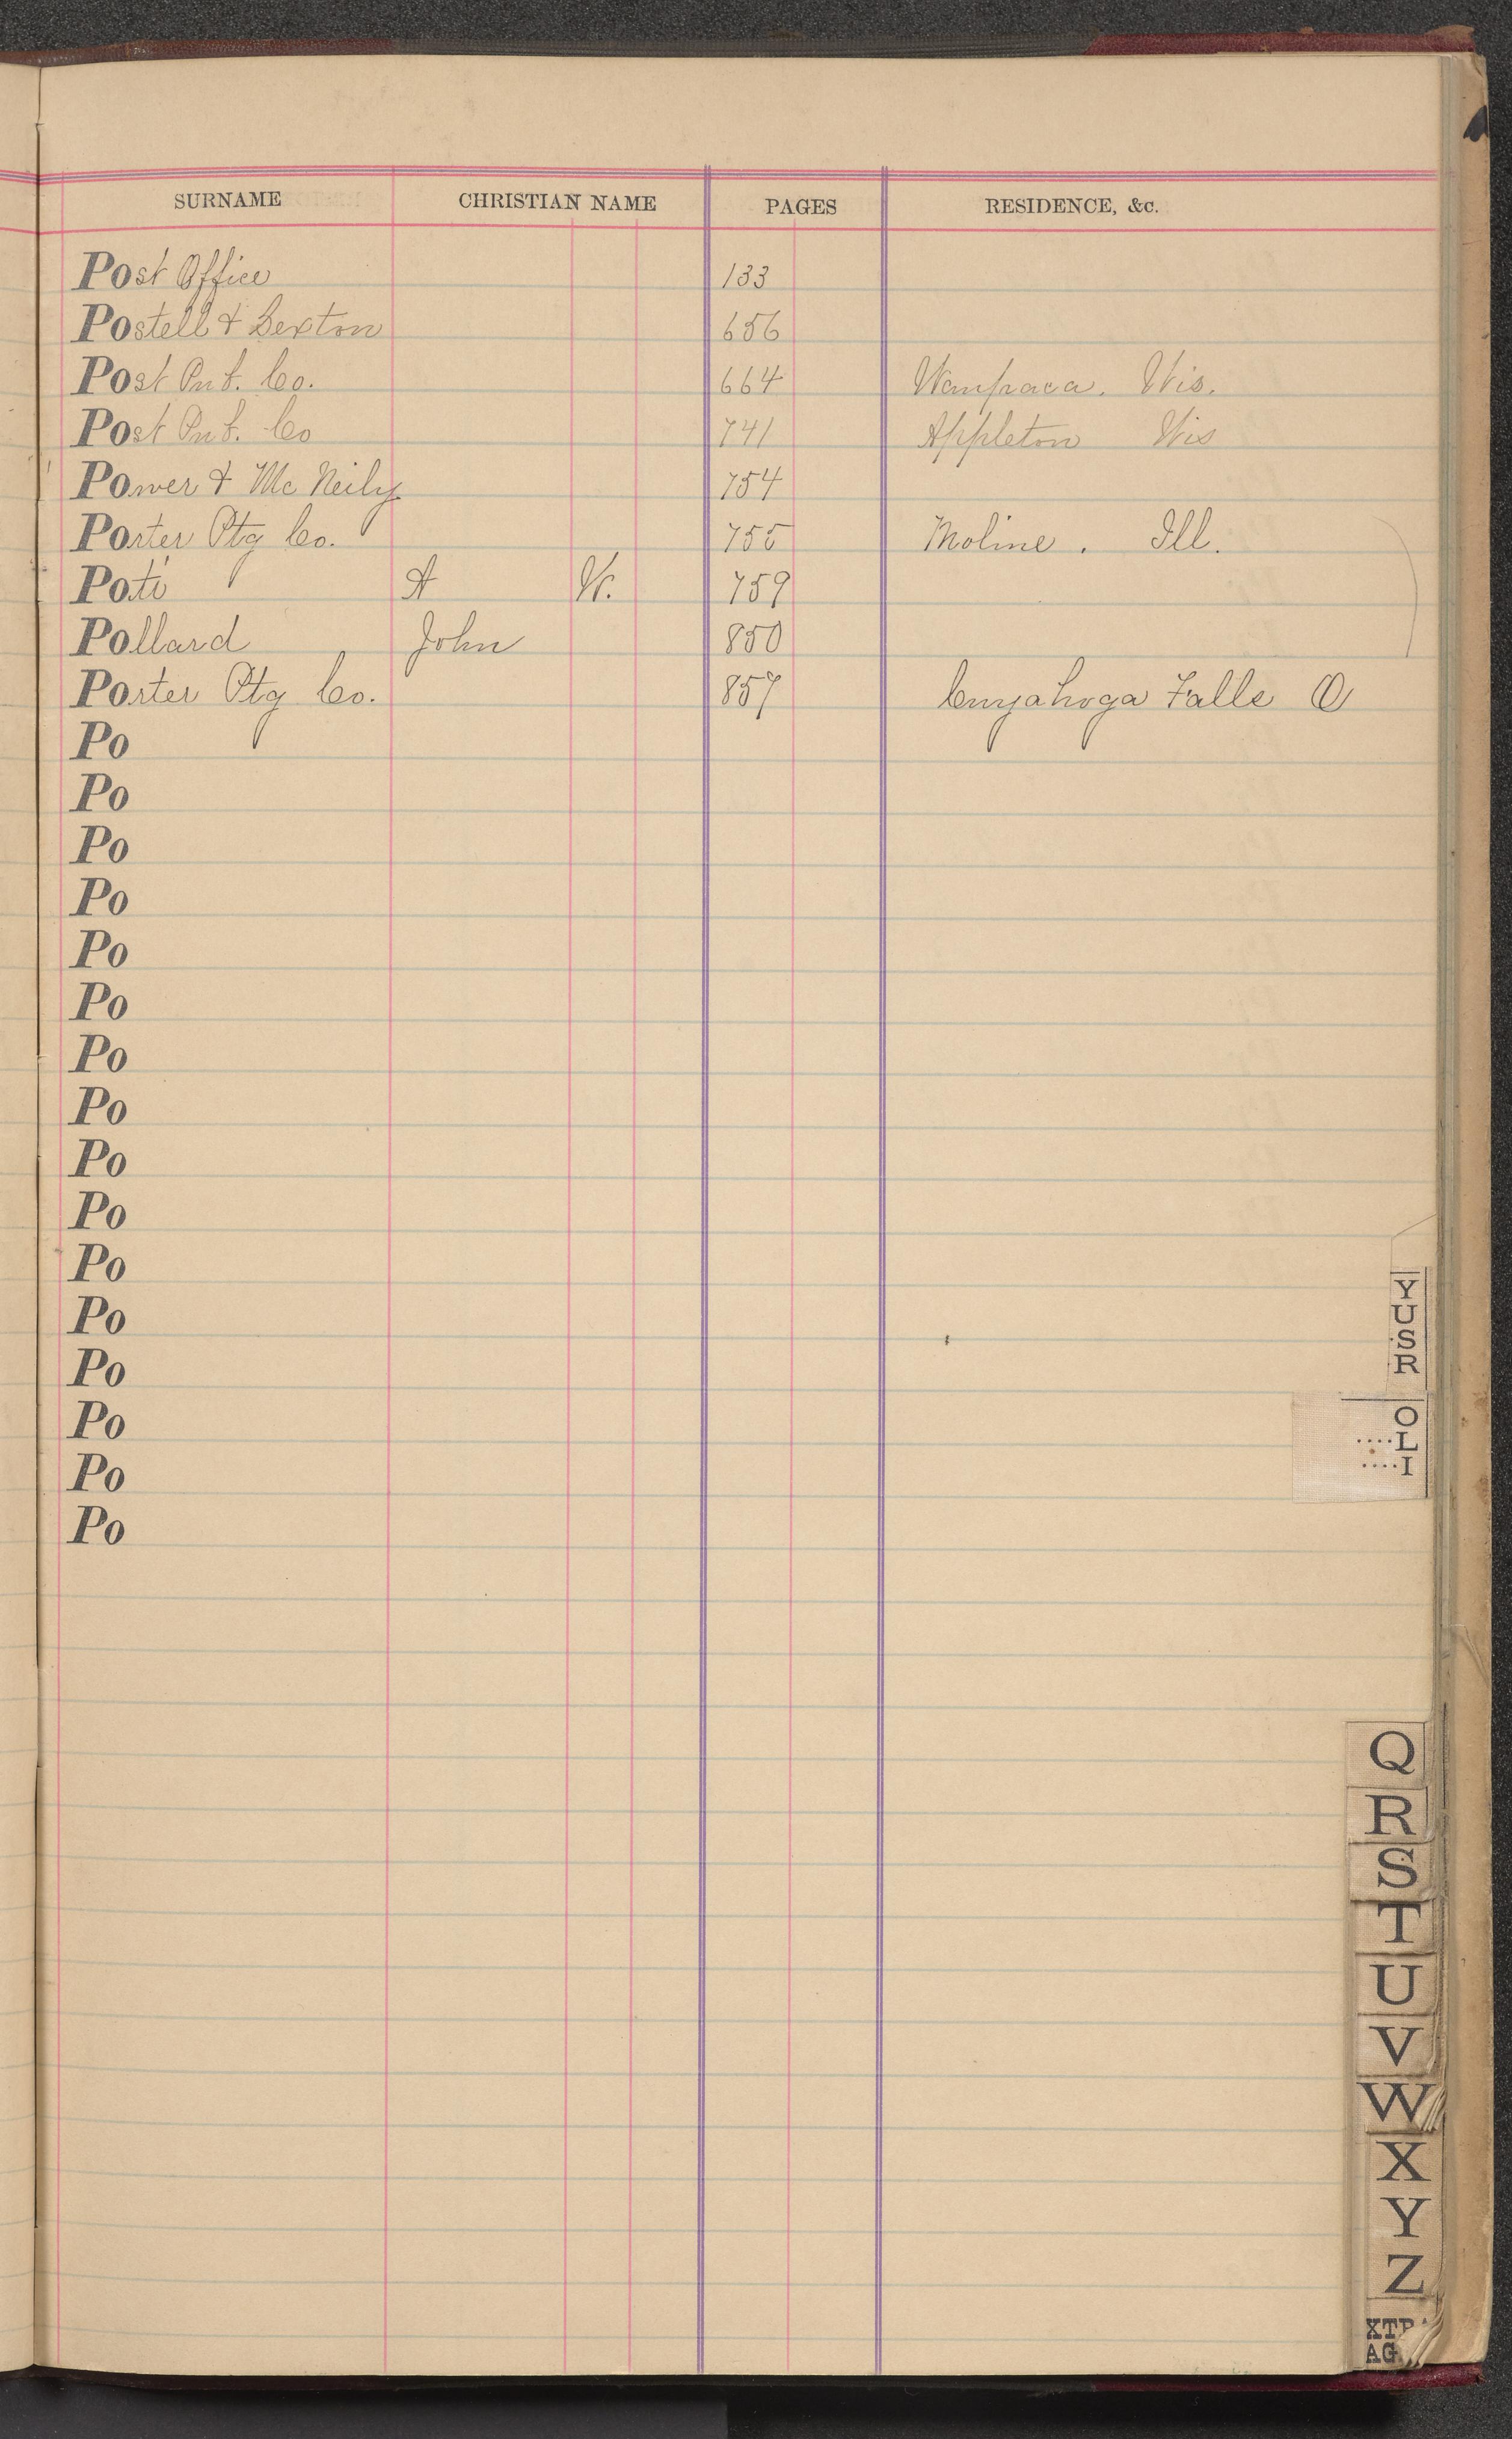 SURNAME CHRISTIAN NAME PAGES RESIDENCE, &c.
Post Office 133
Postell & Sexton 656
Post Pub. Co. 664 Waupaca. Wis.
Post Pub. Co 741 Appleton Wis
Power & McNeily 754
Porter Ptg Co. 755 Moline. Ill.
A W. 759
Pollard John 850
Porter Ptg Co. 857 Cuyahoga Falls O
Po
Po
Po
Po
Po
Po
Po
Po
Po
Po
Po
Po
Po
Po
Po
Po
Y
U
S
R
O
L
I
Q
R
S
T
U
V
W
X
Y
Z